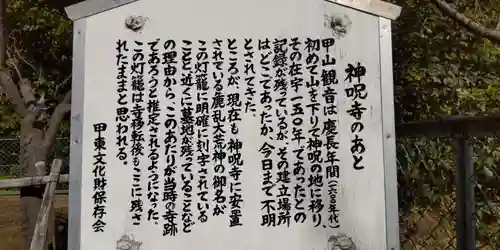 神呪寺のあと
甲山観音は慶長年間(一六〇〇年代)
初めて山を下りて神呪の地に移り、
その在宇一五〇年であったとの
記録が残っているが、その建立場所
はどこであったか、今日まで不明
とされてきた。
ところが、現在も神呪寺に安置
されている鹿乱大荒神の御名が
この灯籠に明確に刻字されている
ことと近くに墓地が残っていることなど
の理由から、このあたりが当時の寺跡
であろうと推定されるようになった。
この灯籠は寺移転後もここに残さ
れたままと思われる。
甲東文化財保存会